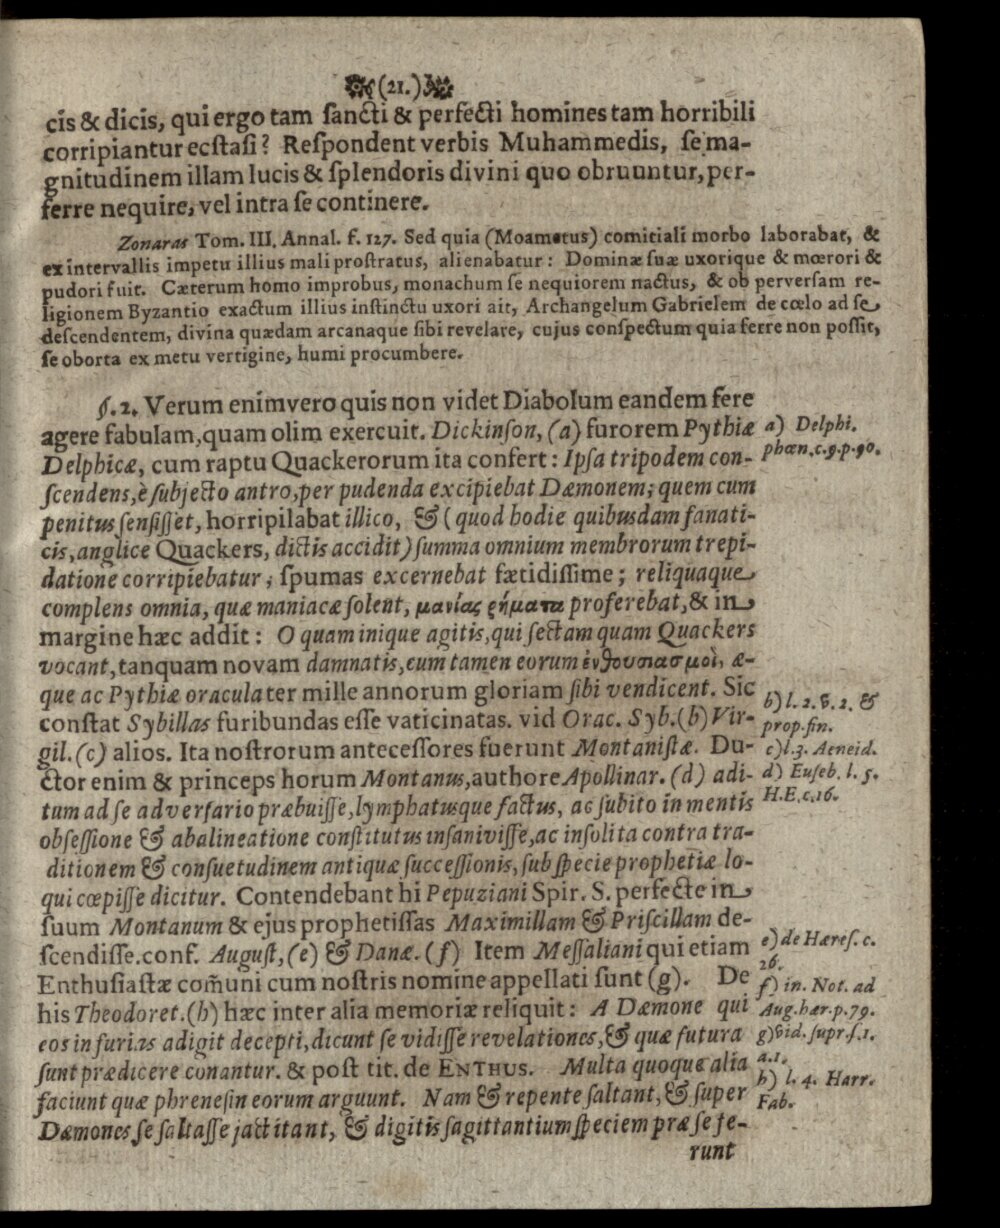 (21.)
cis & dicis, qui ergo tam ſancti & perfecti homines tam horribili
corripiantur ecſtaſi? Reſpondent verbis Muhammedis, ſe ma-
gnitudinem illam lucis & ſplendoris divini quo obruuntur, per-
ferre nequire, vel intra ſe continere.
Zonaras Tom. III. Annal. f. 127. Sed quia (Moametus) comitiali morbo laborabat, &
ex intervallis impetu illius mali proſtratus, alienabatur: Dominæ ſuæ uxorique & mœrori &
pudori fuit. Cæterum homo improbus, monachum ſe nequiorem nactus, & ob perverſam re-
ligionem Byzantio exactum illius inſtinctu uxori ait, Archangelum Gabrielem de cœlo ad ſe
deſcendentem, divina quædam arcanaque ſibi revelare, cujus conſpectum quia ferre non poſſit,
ſe oborta ex metu vertigine, humi procumbere.
§. 2. Verum enimvero quis non videt Diabolum eandem fere
agere fabulam, quam olim exercuit. Dickinſon, (a) furorem Pythiæ
a) Delphi.
phœn. c. 9. p. 90.
Delphicæ, cum raptu Quackerorum ita confert: Ipſa tripodem con-
ſcendens, è ſubjecto antro, per pudenda excipiebat Dæmonem; quem cum
penitus ſenſiſſet, horripilabat illico, & (quod hodie quibusdam fanati-
cis, anglice Quackers, dictis accidit) ſumma omnium membrorum trepi-
datione corripiebatur; ſpumas excernebat fætidiſſime; reliquaque
complens omnia, quæ maniacæ ſolent, μανίας ῥήματα proferebat, & in
margine hæc addit: O quam inique agitis, qui ſectam quam Quackers
vocant, tanquam novam damnatis, cum tamen eorum ἐνθουσιασμοὶ, æ-
que ac Pythiæ oracula ter mille annorum gloriam ſibi vendicent. Sic
conſtat Sybillas furibundas eſſe vaticinatas. vid Orac. Syb. (b) Vir-
b) l. 2. v. 2. &
prop. fin.
gil. (c) alios. Ita noſtrorum anteceſſores fuerunt Montaniſtæ. Du-
c) l. 3. Aeneid.
ctor enim & princeps horum Montanus, authore Apollinar. (d) adi-
d) Euſeb. l. 5.
H. E. c. 16.
tum ad ſe adverſario præbuiſſe, lymphatusque factus, ac ſubito in mentis
obſeſſione & abalineatione conſtitutus inſaniviſſe, ac inſolita contra tra-
ditionem & conſuetudinem antiquæ ſucceſſionis, ſub ſpecie prophetiæ lo-
qui cœpiſſe dicitur. Contendebant hi Pepuziani Spir. S. perfecte in
ſuum Montanum & ejus prophetiſſas Maximillam & Priſcillam de-
ſcendiſſe. conf. Auguſt, (e) & Danæ. (f) Item Meſſaliani qui etiam
e) de Hæreſ. c.
26.
Enthuſiaſtæ com̃uni cum noſtris nomine appellati ſunt (g). De
f) in. Not. ad
his Theodoret. (h) hæc inter alia memoriæ reliquit: A Dæmone qui
Aug. hær. p. 79.
eos in furias adigit decepti, dicunt ſe vidiſſe revelationes, & quæ futura
g) vid. ſupr. ſ. 1.
a. 1.
ſunt prædicere conantur. & poſt tit. de ENTHUS. Multa quoque alia
h) l. 4. Hærr.
Fab.
faciunt quæ phreneſin eorum arguunt. Nam & repente ſaltant, & ſuper
Dæmones ſe ſaltaſſe jactitant, & digitis ſagittantium ſpeciem præ ſe fe-
runt